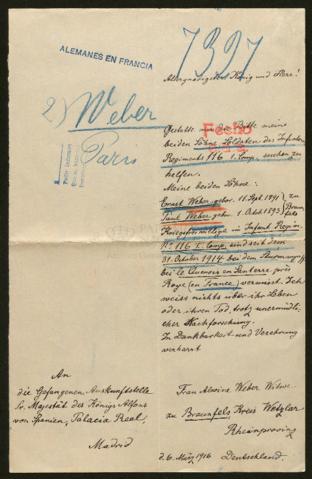 ALEMANES EN FRANCIA
7327
2) Weber
Paris
Allergnädigster König und Herr!
Gestatte mir die Bitte meine
beiden Söhne Soldaten des Infant.
Regiments 116 1. Comp. suchen zu
helfen.
Meine beiden Söhne:
Ernst Weber gebor. 1891 } zu
Paul Weber gebor. 1. Octob. 1893 } Braunfels
Kriegsfreiwillige im Infant. Regim.
No 116 1. Comp. sind seit dem
31. October 1914 bei den
bei le Quesnoi en Santerre près
Roye (en France) vermisst. Ich
weiss nichts über ihr Leben
oder ihren Tod trotz unermüdli-
cher Nachforschung.
In Dankbarkeit und Verehrung
verharrt
Frau Weber Witwe.
zu Braunfels, Kreis Wetzlar
Rheinprovinz
d. 6. März 1916 Deutschland.
An
die Gefangenen Auskunftstelle
Sr. Majestät des Königs Alfons
von Spanien, Palacio Real,
Madrid